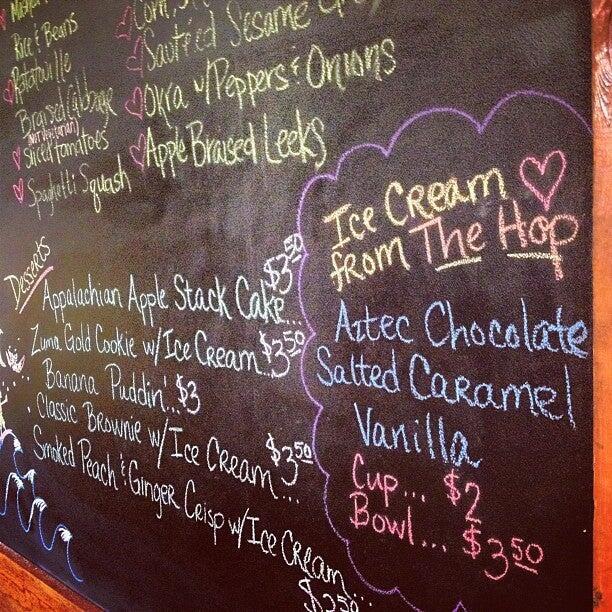 Rice & Beans
Ratatouille
Braised Cabbage
(not vegetarian)
Sliced Tomatoes
Spaghetti Squash
Corn,
Sautéed Sesame
Okra w/Peppers & Onions
Apple Braised Leeks
Desserts
Appalachian Apple Stack Cake... $3.50
Zuma Gold Cookie w/Ice Cream... $3.50
Banana Puddin'... $3
Classic Brownie w/Ice Cream... $3.50
Smoked Peach & Ginger Crisp w/Ice Cream...
Ice Cream
from The Hop
Aztec Chocolate
Salted Caramel
Vanilla
Cup... $2
Bowl... $3.50